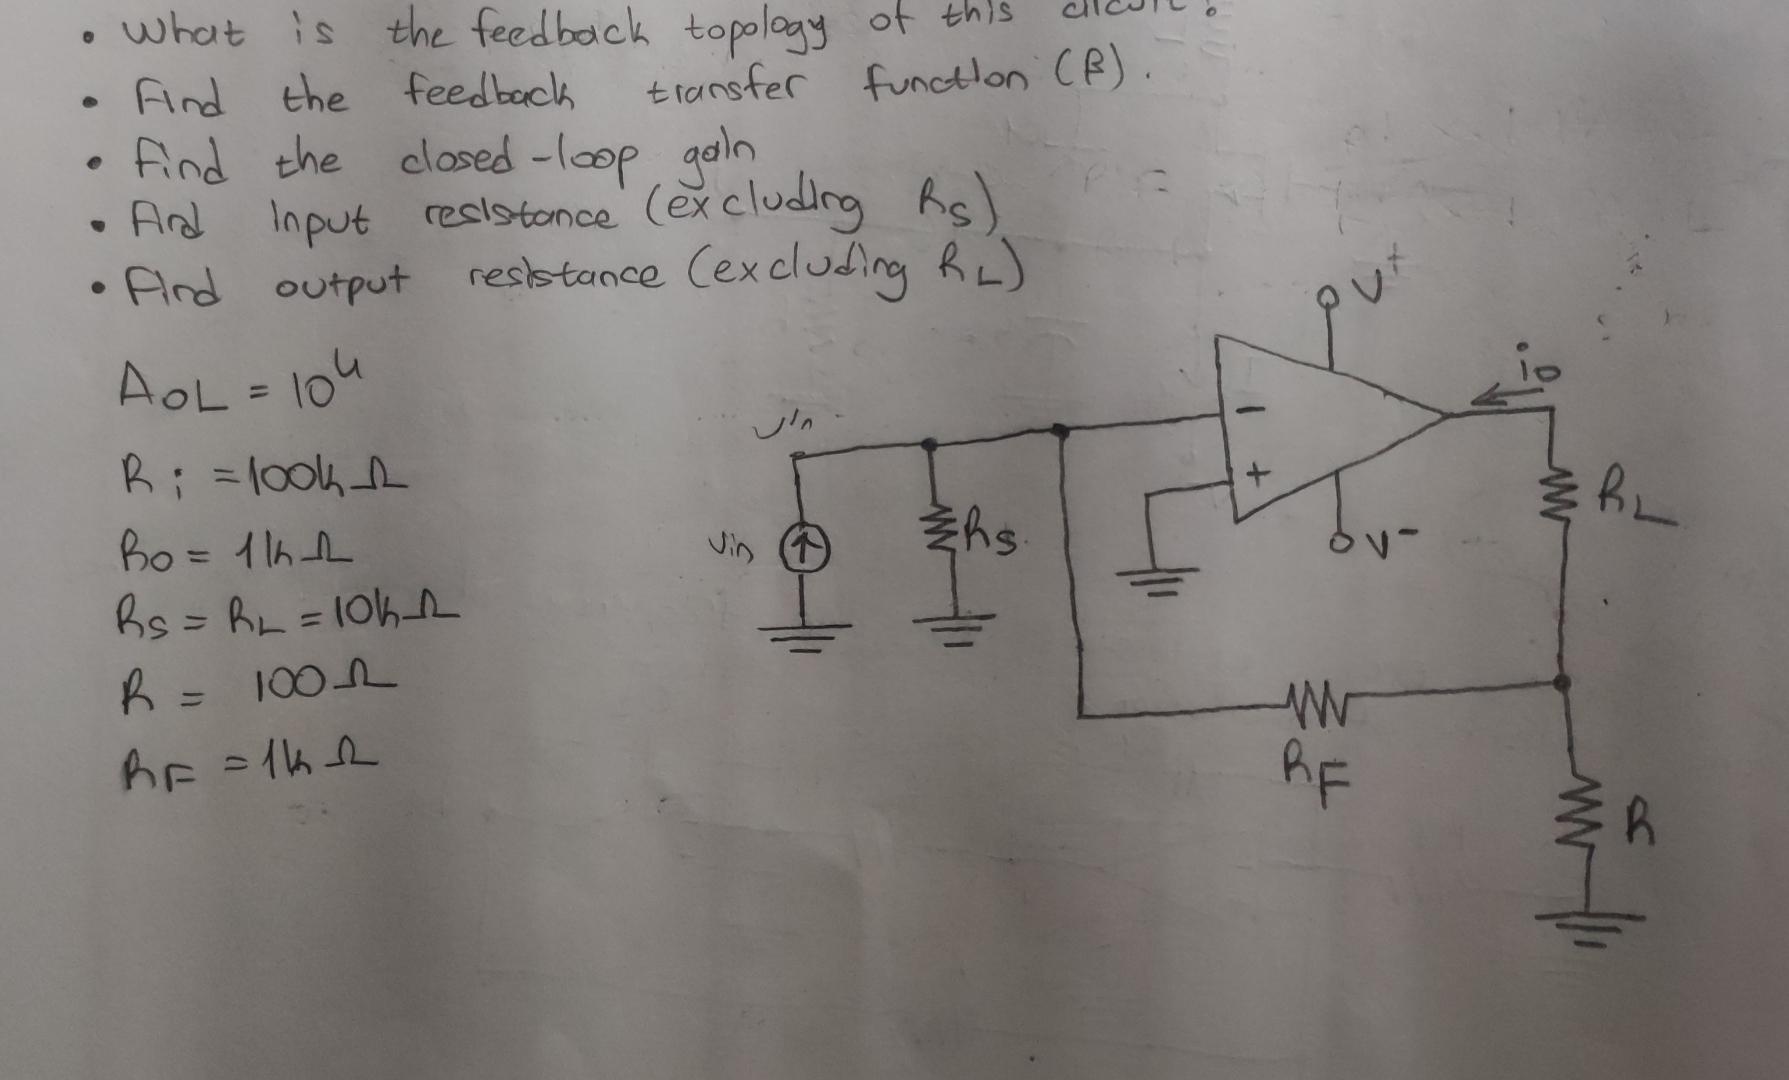 • What is the feedback topology of this circuit?
• Find the feedback transfer function (β).
• Find the closed-loop gain
• Find Input resistance (excluding Rs)
• Find output resistance (excluding RL)
AOL = 10⁴
Ri = 100k Ω
Ro = 1k Ω
Rs = RL = 10k Ω
R = 100 Ω
RF = 1k Ω
V⁺
io
Vin
−
+
RL
Vin
Rs
V⁻
RF
R